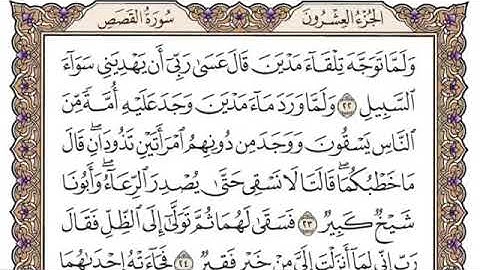 الجُزْءُ العِشْرُونَ سُورَةُ القَصَصِ
وَلَمَّا تَوَجَّهَ تِلْقَآءَ مَدْيَنَ قَالَ عَسَىٰ رَبِّىٓ أَن يَهْدِيَنِى سَوَآءَ
ٱلسَّبِيلِ ٢٢ وَلَمَّا وَرَدَ مَآءَ مَدْيَنَ وَجَدَ عَلَيْهِ أُمَّةً مِّنَ
ٱلنَّاسِ يَسْقُونَ وَوَجَدَ مِن دُونِهِمُ ٱمْرَأَتَيْنِ تَذُودَانِۖ قَالَ
مَا خَطْبُكُمَاۖ قَالَتَا لَا نَسْقِى حَتَّىٰ يُصْدِرَ ٱلرِّعَآءُۖ وَأَبُونَا
شَيْخٌ كَبِيرٌ ٢٣ فَسَقَىٰ لَهُمَا ثُمَّ تَوَلَّىٰٓ إِلَى ٱلظِّلِّ فَقَالَ
رَبِّ إِنِّى لِمَآ أَنزَلْتَ إِلَىَّ مِنْ خَيْرٍ فَقِيرٌ ٢٤ فَجَآءَتْهُ إِحْدَىٰهُمَا